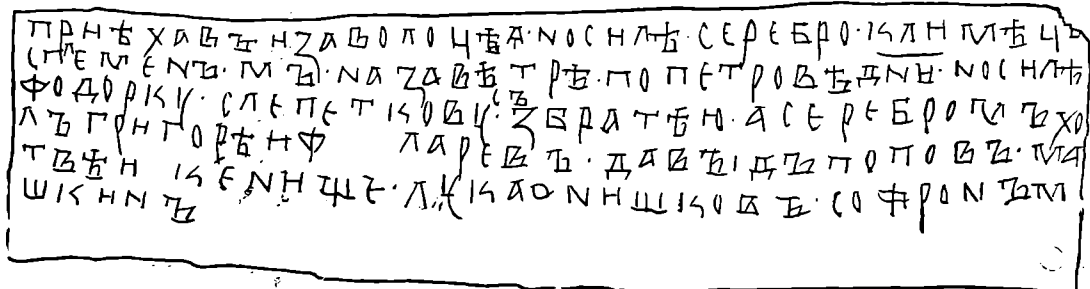 ПРИѢХАВЪИЗАВОЛОЦѢА·NОСИЛѢ·СЕРЕБРО·КЛИМѢЦЬ
СПЛЕМЕNЪ·МЪ·NАЗАВѢТРѢ·ПОПЕТРОВѢДNИ·NОСИЛѢ
ФОДОРКУ·СЛЕПЕТКОВУ·СЪЗБРАТѢЮ·АСЕРЕБРОПЛЪХО
ЛЪГРИГОРѢИФ ЛАРЕВЪ·ДАВЪІДЪПОПОВЪ·МА
ТВѢИ КЕNИЩЕ·ЛУКАОNИШКОВЪ·СОФРОNЪМ
ШКИNЪ